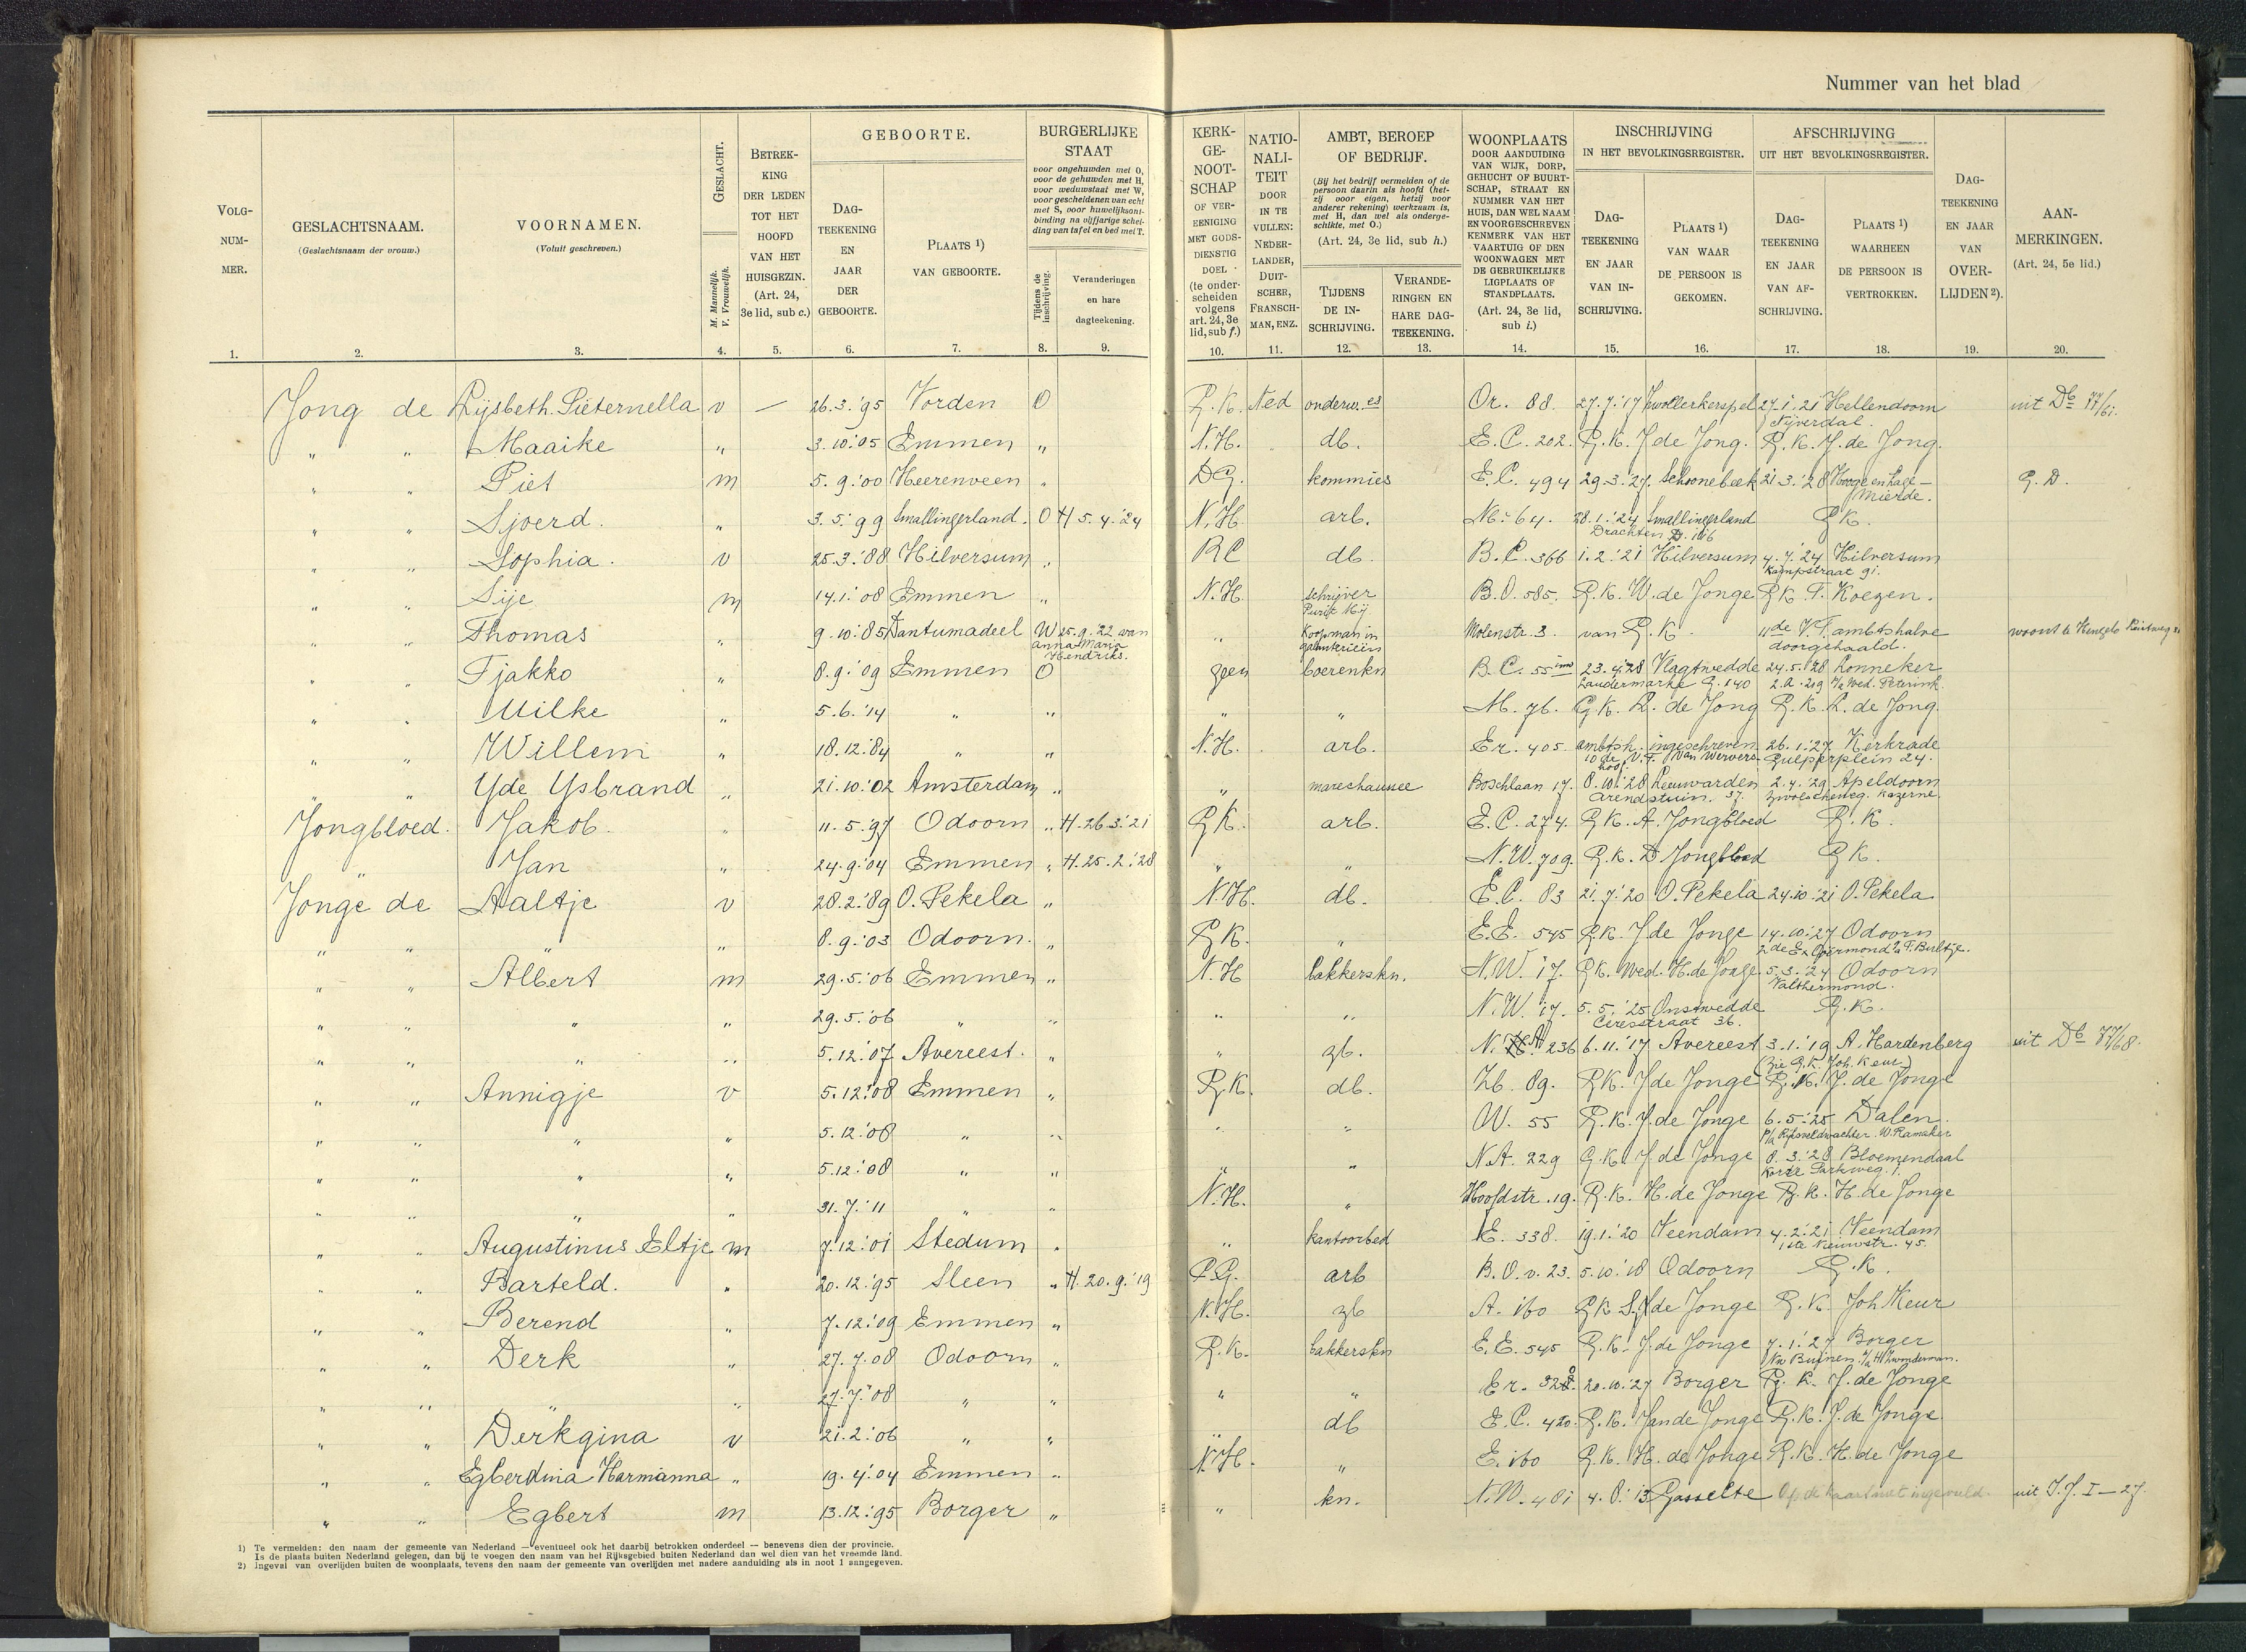 Nummer van het blad
VOLG-NUM-MER.
GESLACHTSNAAM. (Geslachtsnaam der vrouw.)
VOORNAMEN. (Voluit geschreven.)
GESLACHT. M. Mannelijk. V. Vrouwelijk.
BETREK-KING DER LEDEN TOT HET HOOFD VAN HET HUISGEZIN. (Art. 24, 3e lid, sub c.)
GEBOORTE.
DAG-TEEKENING EN JAAR DER GEBOORTE.
PLAATS 1) VAN GEBOORTE.
BURGERLIJKE STAAT
voor ongehuwden met O, voor de gehuwden met H, voor weduwstaat met W, voor gescheidenen van echt met S, voor huwelijksont-binding na vijfjarige schei-ding van tafel en bed met T.
Tijdens de inschrijving.
Veranderingen en hare dagteekening.
KERK-GE-NOOT-SCHAP OF VER-EENIGING MET GODS-DIENSTIG DOEL (te onder-scheiden volgens art. 24, 3e lid, sub f.)
NATIO-NALI-TEIT DOOR IN TE VULLEN: NEDER-LANDER, DUIT-SCHER, FRANSCH-MAN, ENZ.
AMBT, BEROEP OF BEDRIJF.
(Bij het bedrijf vermelden of de persoon daarin als hoofd (het-zij voor eigen, hetzij voor anderer rekening) werkzaam is, met H, dan wel als onderge-schikte, met O.)
(Art. 24, 3e lid, sub h.)
TIJDENS DE IN-SCHRIJVING.
VERANDE-RINGEN EN HARE DAG-TEEKENING.
WOONPLAATS DOOR AANDUIDING VAN WIJK, DORP, GEHUCHT OF BUURT-SCHAP, STRAAT EN NUMMER VAN HET HUIS, DAN WEL NAAM EN VOORGESCHREVEN KENMERK VAN HET VAARTUIG OF DEN WOONWAGEN MET DE GEBRUIKELIJKE LIGPLAATS OF STANDPLAATS. (Art. 24, 3e lid, sub i.)
INSCHRIJVING IN HET BEVOLKINGSREGISTER.
DAG-TEEKENING EN JAAR VAN IN-SCHRIJVING.
PLAATS 1) VAN WAAR DE PERSOON IS GEKOMEN.
AFSCHRIJVING UIT HET BEVOLKINGSREGISTER.
DAG-TEEKENING EN JAAR VAN AF-SCHRIJVING.
PLAATS 1) WAARHEEN DE PERSOON IS VERTROKKEN.
DAG-TEEKENING EN JAAR VAN OVER-LIJDEN 2).
AAN-MERKINGEN. (Art. 24, 5e lid.)
1. 2. 3. 4. 5. 6. 7. 8. 9. 10. 11. 12. 13. 14. 15. 16. 17. 18. 19. 20.
Jong de Lijsbeth Pieternella v — 26.3.'95 Vorden O G.K. Ned onderw.es Or. 88. 27.7.'17 Zwollerkerspel 27.1.'21 Hellendoorn Nijverdal. uit Db 77/61.
" " Maaike " 3.10.'05 Emmen " N.H. db. E.C. 202. G.K. J de Jong. G.K. J. de Jong.
" " Piet m 5.9.'00 Heerenveen " DG. kommies E.C. 494 29.3.'27. Schoonebeek 21.3.'28 Hooge en Lage-Mierde. G.D.
" " Sjoerd. " 3.5.'99 Smallingerland. O H 5.4.'24 N.H. arb. M. 64. 28.1.'24 Smallingerland Drachten D. 116 GK.
" " Sophia. v 25.3.'88 Hilversum " RC db. B.C. 366 1.2.'21 Hilversum 4.7.'24 Hilversum Kampstraat 91.
" " Sije m 14.1.'08 Emmen " N.H. schrijver Purit Mij B.O. 585. G.K. W. de Jonge GK. F. Koezen.
" " Thomas " 9.10.'85 Dantumadeel W 25.9.'22 van Anna Maria Hendriks. " Koopman in galanterieën Molenstr. 3. van G.K. 11de V.T. ambtshalve doorgehaald. woont te Hengelo
" " Tjakko " 8.9.'09 Emmen O geen boerenkn B.C. 55 23.4.'28 Vlagtwedde Laudermarke G. 140 24.5.'28 Lonneker 2.a.219 p/a Wed. Peterink.
" " Uilke " 5.6.'14 " " " " M. 76. G.K. L. de Jong G.K. L. de Jong.
" " Willem " 18.12.'84 " " N.H. arb. Er. 405 ambtsh. ingeschreven 10de V.T. van Wervers 26.1.'27 Kerkrade Gulperplein 24.
" " Yde Ysbrand " 21.10.'02 Amsterdam " " mareshaussee Boschlaan 17. 8.10.'28 Leeuwarden Arendstuin. 37. 2.4.'29 Apeldoorn Zwolscheweg. Kazerne.
Jongbloed. Jakob. " 11.5.'97 Odoorn " H. 26.3.'21 GK. arb. E.C. 274. GK. A. Jongbloed G.K.
" Jan " 24.9.'04 Emmen " H. 25.2.'28 " " N.W. 709. G.K. D Jongbloed GK.
Jonge de Aaltje v 28.2.'89 O. Pekela " N.H. db. E.C. 83 21.7.'20 O. Pekela 24.10.'21 O. Pekela
" " " " 8.9.'03 Odoorn. " GK. " E.E. 545 G.K. J de Jonge 14.10.'27 Odoorn 2de Ex. Oermond p/a F. Bultje.
" " Albert m 29.5.'06 Emmen " N.H bakkerskn. N.W. 17. GK. Wed. H. de Jonge 5.3.'24 Odoorn Valthermond.
" " " " 29.5.'06 " " " " N.W. 17. 5.5.'25 Onstwedde Ceresstraat 36. G.K.
" " " " 5.12.'07 Avereest. " " zb. N.A 236 6.11.'17 Avereest 3.1.'19 A. Hardenberg (Zie G.K. Joh. Keur) uit Db 77/68.
" " Annigje v 5.12.'08 Emmen " G.K. db. Zb. 89. GK. J de Jonge G.K. J. de Jonge
" " " " 5.12.'08 " " " " W. 55 G.K. J. de Jonge 6.5.'25 Dalen. P/a Rijksveldwachter W. Ramaker
" " " " 5.12.'08 " " " " N.A. 229 G.K. J de Jonge 8.3.'28 Bloemendaal Korte Parkweg. 1.
" " " " 31.7.'11 " " N.H. " Hoofdstr. 19. G.K. H. de Jonge G.K. H. de Jonge
" " Augustinus Eltje m 7.12.'01 Stedum " " kantoorbed E. 338. 19.1.'20 Veendam 4.2.'21 Veendam 1ste Nieuwstr. 45.
" " Barteld. " 20.12.'95 Sleen " H. 20.9.'19 P.G. arb B.O.v. 23. 5.10.'18 Odoorn G.K.
" " Berend " 7.12.'09 Emmen " N.H. zb A. 160 GK S. J de Jonge G.K. Joh Keur
" " Derk " 27.7.08 Odoorn " G.K. bakkerskn E.E. 545 G.K. J. de Jonge 7.1.'27 Borger Nw Buinen
" " " " 27.7.'08 " " " " Er. 328. 20.10.'27 Borger G. K. J. de Jonge
" " Derkgina v 21.2.'06 " " " db E.C. 420. G.K. Jan de Jonge G.K. J. de Jonge
" " Egberdina Harmanna " 19.4.'04 Emmen " N.H. " E. 160 G.K. H. de Jonge G.K. H. de Jonge
" " Egbert m 13.12.'95 Borger " " kn. N.W. 481 4.8.'13 Gasselte Op de kaart niet ingevuld. uit J.J. I-27.
1) Te vermelden: den naam der gemeente van Nederland — eventueel ook het daarbij betrokken onderdeel — benevens dien der provincie.
Is de plaats buiten Nederland gelegen, dan bij te voegen den naam van het Rijksgebied buiten Nederland dan wel dien van het vreemde land.
2) Ingeval van overlijden buiten de woonplaats, tevens den naam der gemeente van overlijden met nadere aanduiding als in noot 1 aangegeven.